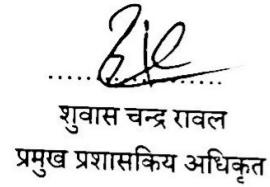 शुवास चन्द्र रावल
प्रमुख प्रशासकिय अधिकृत